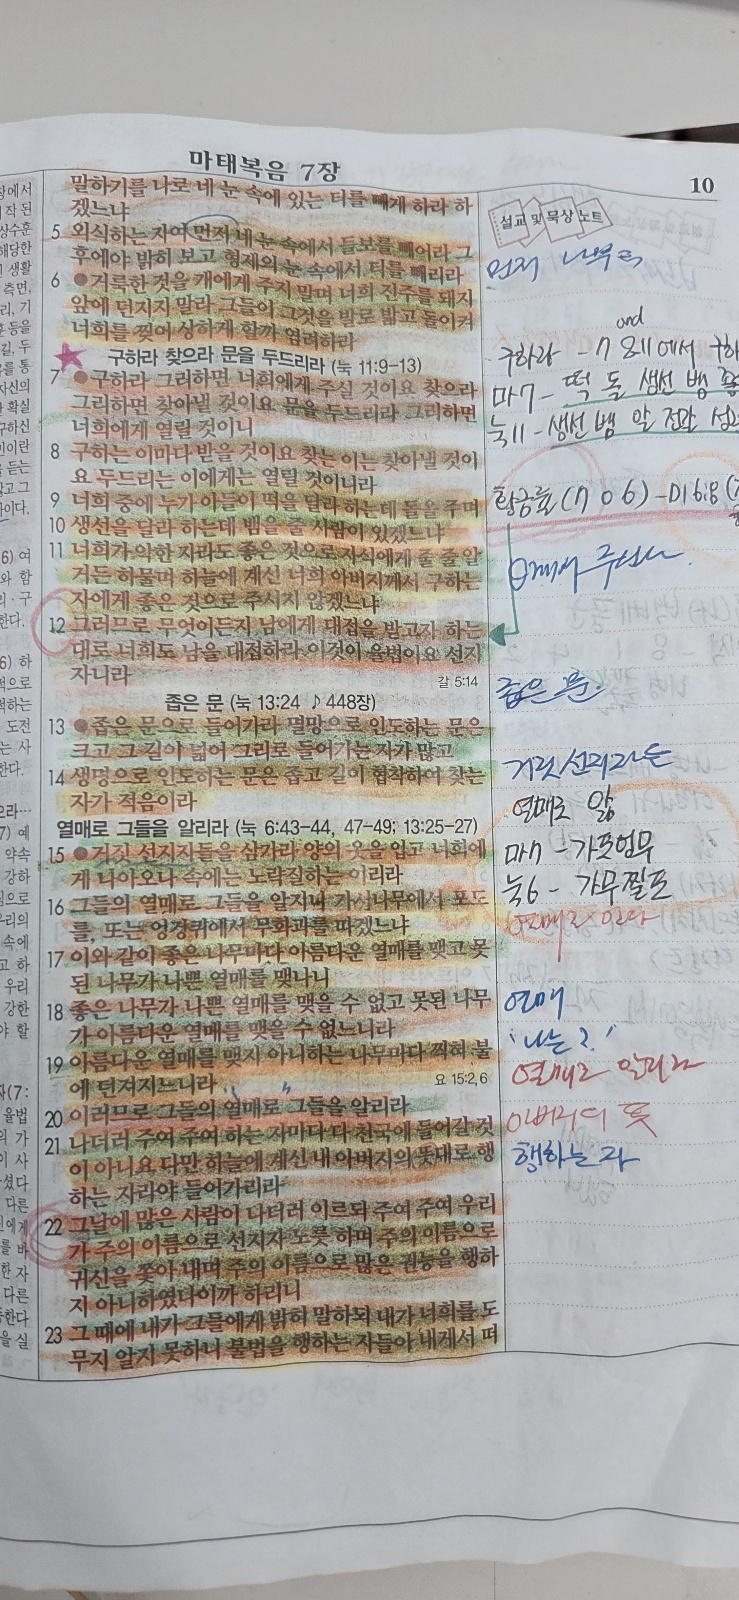 마태복음 7장
10
말하기를 나로 네 눈 속에 있는 티를 빼게 하라 하
겠느냐
5 외식하는 자여 먼저 네 눈 속에서 들보를 빼어라 그
후에야 밝히 보고 형제의 눈 속에서 티를 빼리라
6 ●거룩한 것을 개에게 주지 말며 너희 진주를 돼지
앞에 던지지 말라 그들이 그것을 발로 밟고 돌이켜
너희를 찢어 상하게 할까 염려하라
구하라 찾으라 문을 두드리라 (눅 11:9-13)
7 ●구하라 그리하면 너희에게 주실 것이요 찾으라
그리하면 찾아낼 것이요 문을 두드리라 그리하면
너희에게 열릴 것이니
8 구하는 이마다 받을 것이요 찾는 이는 찾아낼 것이
요 두드리는 이에게는 열릴 것이니라
9 너희 중에 누가 아들이 떡을 달라 하는데 돌을 주며
10 생선을 달라 하는데 뱀을 줄 사람이 있겠느냐
11 너희가 악한 자라도 좋은 것으로 자식에게 줄 줄 알
거든 하물며 하늘에 계신 너희 아버지께서 구하는
자에게 좋은 것으로 주시지 않겠느냐
12 그러므로 무엇이든지 남에게 대접을 받고자 하는
대로 너희도 남을 대접하라 이것이 율법이요 선지
자니라
갈 5:14
좁은 문 (눅 13:24 ♪448장)
13 ●좁은 문으로 들어가라 멸망으로 인도하는 문은
크고 그 길이 넓어 그리로 들어가는 자가 많고
14 생명으로 인도하는 문은 좁고 길이 협착하여 찾는
자가 적음이라
열매로 그들을 알리라 (눅 6:43-44, 47-49; 13:25-27)
15 ●거짓 선지자들을 삼가라 양의 옷을 입고 너희에
게 나아오나 속에는 노략질하는 이리라
16 그들의 열매로 그들을 알지니 가시나무에서 포도
를, 또는 엉겅퀴에서 무화과를 따겠느냐
17 이와 같이 좋은 나무마다 아름다운 열매를 맺고 못
된 나무가 나쁜 열매를 맺나니
18 좋은 나무가 나쁜 열매를 맺을 수 없고 못된 나무
가 아름다운 열매를 맺을 수 없느니라
19 아름다운 열매를 맺지 아니하는 나무마다 찍혀 불
에 던져지느니라
요 15:2,6
20 이러므로 그들의 열매로 그들을 알리라
21 나더러 주여 주여 하는 자마다 다 천국에 들어갈 것
이 아니요 다만 하늘에 계신 내 아버지의 뜻대로 행
하는 자라야 들어가리라
22 그 날에 많은 사람이 나더러 이르되 주여 주여 우리
가 주의 이름으로 선지자 노릇 하며 주의 이름으로
귀신을 쫓아 내며 주의 이름으로 많은 권능을 행하
지 아니하였나이까 하리니
23 그 때에 내가 그들에게 밝히 말하되 내가 너희를 도
무지 알지 못하니 불법을 행하는 자들아 내게서 떠
설교 및 묵상 노트
먼저 나부터
and
구하라 - 7 8 11에서
마7 - 떡 돌 생선 뱀
눅11 - 생선 뱀 알 전갈
황금률(7 0 6) -
주신다
좁은 문
거짓선지자는
열매로 앎
마7 - 가포엉무
눅6 - 가무찔포
열매로 안다
열매
'나는?'
열매로 알리라
아버지의 뜻
행하는 자